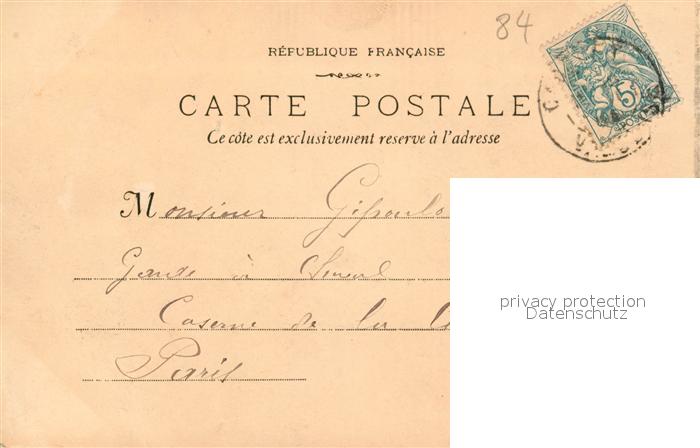 84
RÉPUBLIQUE FRANÇAISE
CARTE POSTALE
Ce côte est exclusivement reserve à l'adresse
Monsieur
Garde à
Caserne de la
Paris
5
privacy protection
Datenschutz